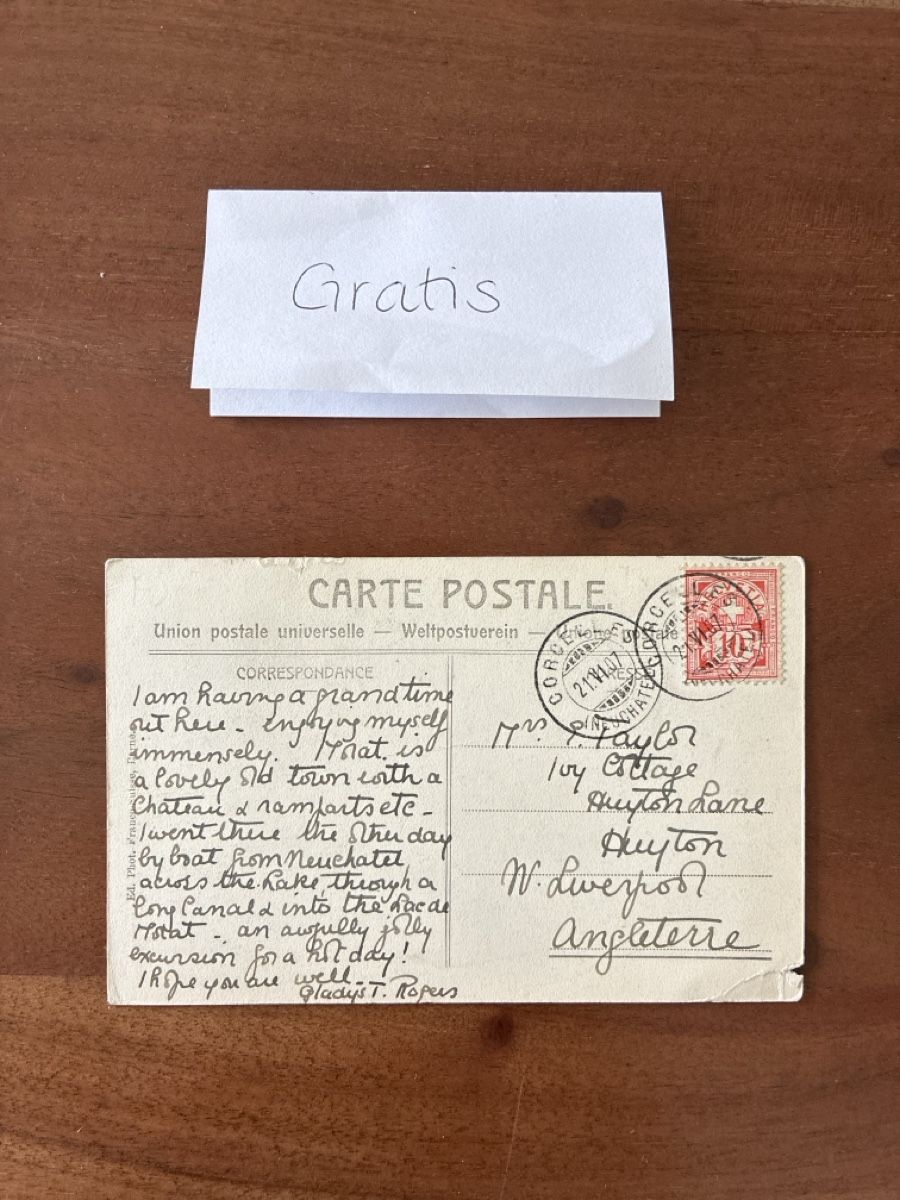 Gratis
CARTE POSTALE.
Union postale universelle — Weltpostverein — Unione postale
CORRESPONDANCE
I am having a grand time
out here - enjoying myself
immensely. Morat is
a lovely old town with a
Chateau & ramparts etc -
I went there the other day
by boat from Neuchatel
across the Lake, through a
long Canal & into the Lac de
Morat - an awfully jolly
excursion for a hot day!
I hope you are well -
Gladys T. Rogers
Ed. Phot. Franco-Suisse, Berne
CORCELLES
21.VI.07
(NEUCHATEL)
CORCELLES
21.VI.07
FRANCO
HELVETIA
10
Mrs P. Taylor
Ivy Cottage
Huyton Lane
Huyton
W. Liverpool
Angleterre